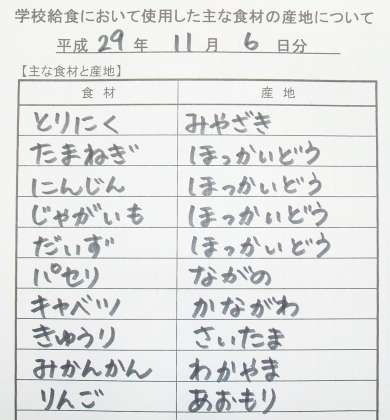 学校給食において使用した主な食材の産地について
平成 29 年 11 月 6 日分
【主な食材と産地】
食 材 産 地
とりにく みやざき
たまねぎ ほっかいどう
にんじん ほっかいどう
じゃがいも ほっかいどう
だいず ほっかいどう
パセリ ながの
キャベツ かながわ
きゅうり さいたま
みかんかん わかやま
りんご あおもり